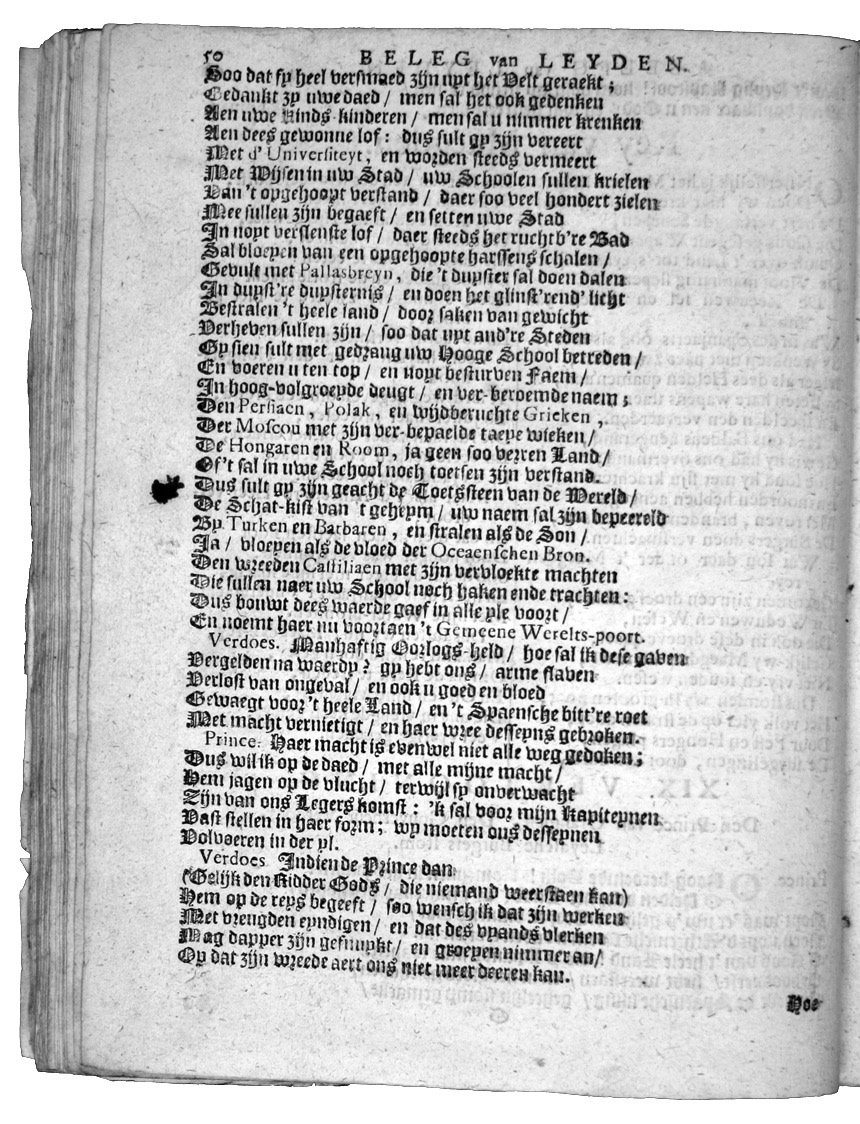 50 BELEG van LEYDEN.
Soo dat sy heel versmaed zijn uyt het Velt geraekt;
Gedankt zy uwe daed / men sal het ook gedenken
Aen uwe Kinds-kinderen / men sal u nimmer krenken
Aen dees gewonne lof: dus sult gy zijn vereert
Met d' Universiteyt, en worden steeds vermeert
Met Wijsen in uw Stad / uw Schoolen sullen krielen
Van 't opgehoopt verstand / daer soo veel hondert zielen
Mee sullen zijn begaeft / en setten uwe Stad
In noyt verslenste lof / daer steeds het ruchtb're Bad
Sal bloeyen van een opgehoopte harssens schalen /
Gevult met Pallasbreyn, die 't duyster sal doen dalen
In duyst're duysternis / en doen het glinst'rend' licht
Bestralen 't heele land / door saken van gewicht
Verheven sullen zijn / soo dat uyt and're Steden
Gy sien sult met gedrang uw Hooge School betreden /
En voeren u ten top / en noyt besturven Faem /
In hoog-volgroeyde deugt / en ver-beroemde naem;
Den Persiaen, Polak, en wijdberuchte Grieken,
Der Moscou met zijn ver-bepaelde taeye wieken /
De Hongaren en Room, ja geen soo verren Land /
Of 't sal in uwe School noch toetsen zijn verstand.
Dus sult gy zijn geacht de Toetssteen van de Wereld /
De Schat-kist van 't geheym / uw naem sal zijn bepeereld
By Turken en Barbaren, en stralen als de Son /
Ja / vloeyen als de vloed der Oceaenschen Bron.
Den wreeden Castiliaen met zijn vervloekte machten
Die sullen naer uw School noch haken ende trachten:
Dus bouwt dees waerde gaef in alle yle voort /
En noemt haer nu voortaen 't Gemeene Werelts-poort.
Verdoes. Manhaftig Oorlogs-held / hoe sal ik dese gaven
Vergelden na waerdy? gy hebt ons / arme slaven
Verlost van ongeval / en ook u goed en bloed
Gewaegt voor 't heele Land / en 't Spaensche bitt're roet
Met macht vernietigt / en haer wree desseyns gebroken.
Prince. Haer macht is evenwel niet alle weg gedoken;
Dus wil ik op de daed / met alle mijne macht /
Hem jagen op de vlucht / terwijl sy onverwacht
Zijn van ons Legers komst: 'k sal voor mijn Kapiteynen
Vast stellen in haer form; wy moeten ons desseynen
Volvoeren in der yl.
Verdoes. Indien de Prince dan
(Gelijk den Ridder Gods / die niemand weerstaen kan)
Hem op de reys begeeft / soo wensch ik dat zijn werken
Met vreugden eyndigen / en dat des vyands vlerken
Mag dapper zijn gesnuykt / en groeyen nimmer an /
Op dat zijn wreede aert ons niet meer deeren kan.
Hoe